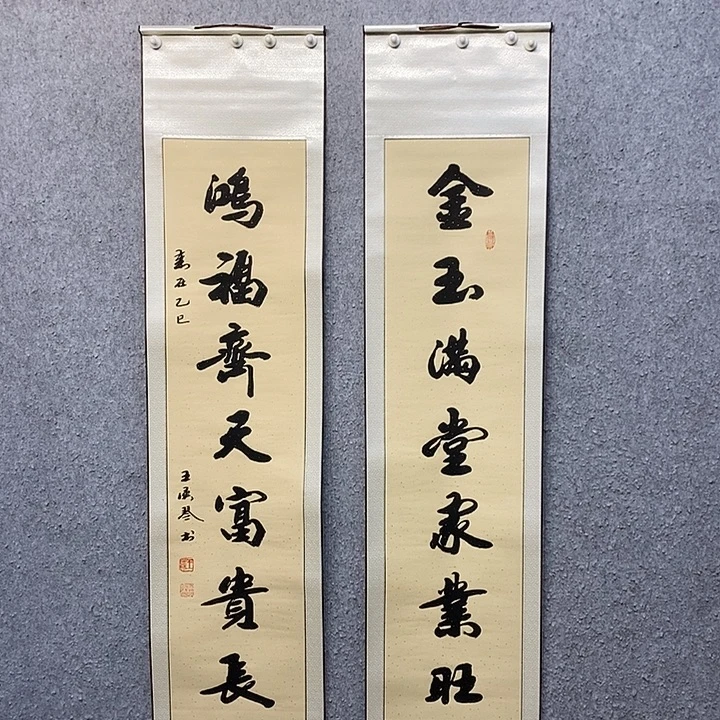 金玉滿堂家業旺
鴻福齊天富貴長
歲在乙巳
王 琴书